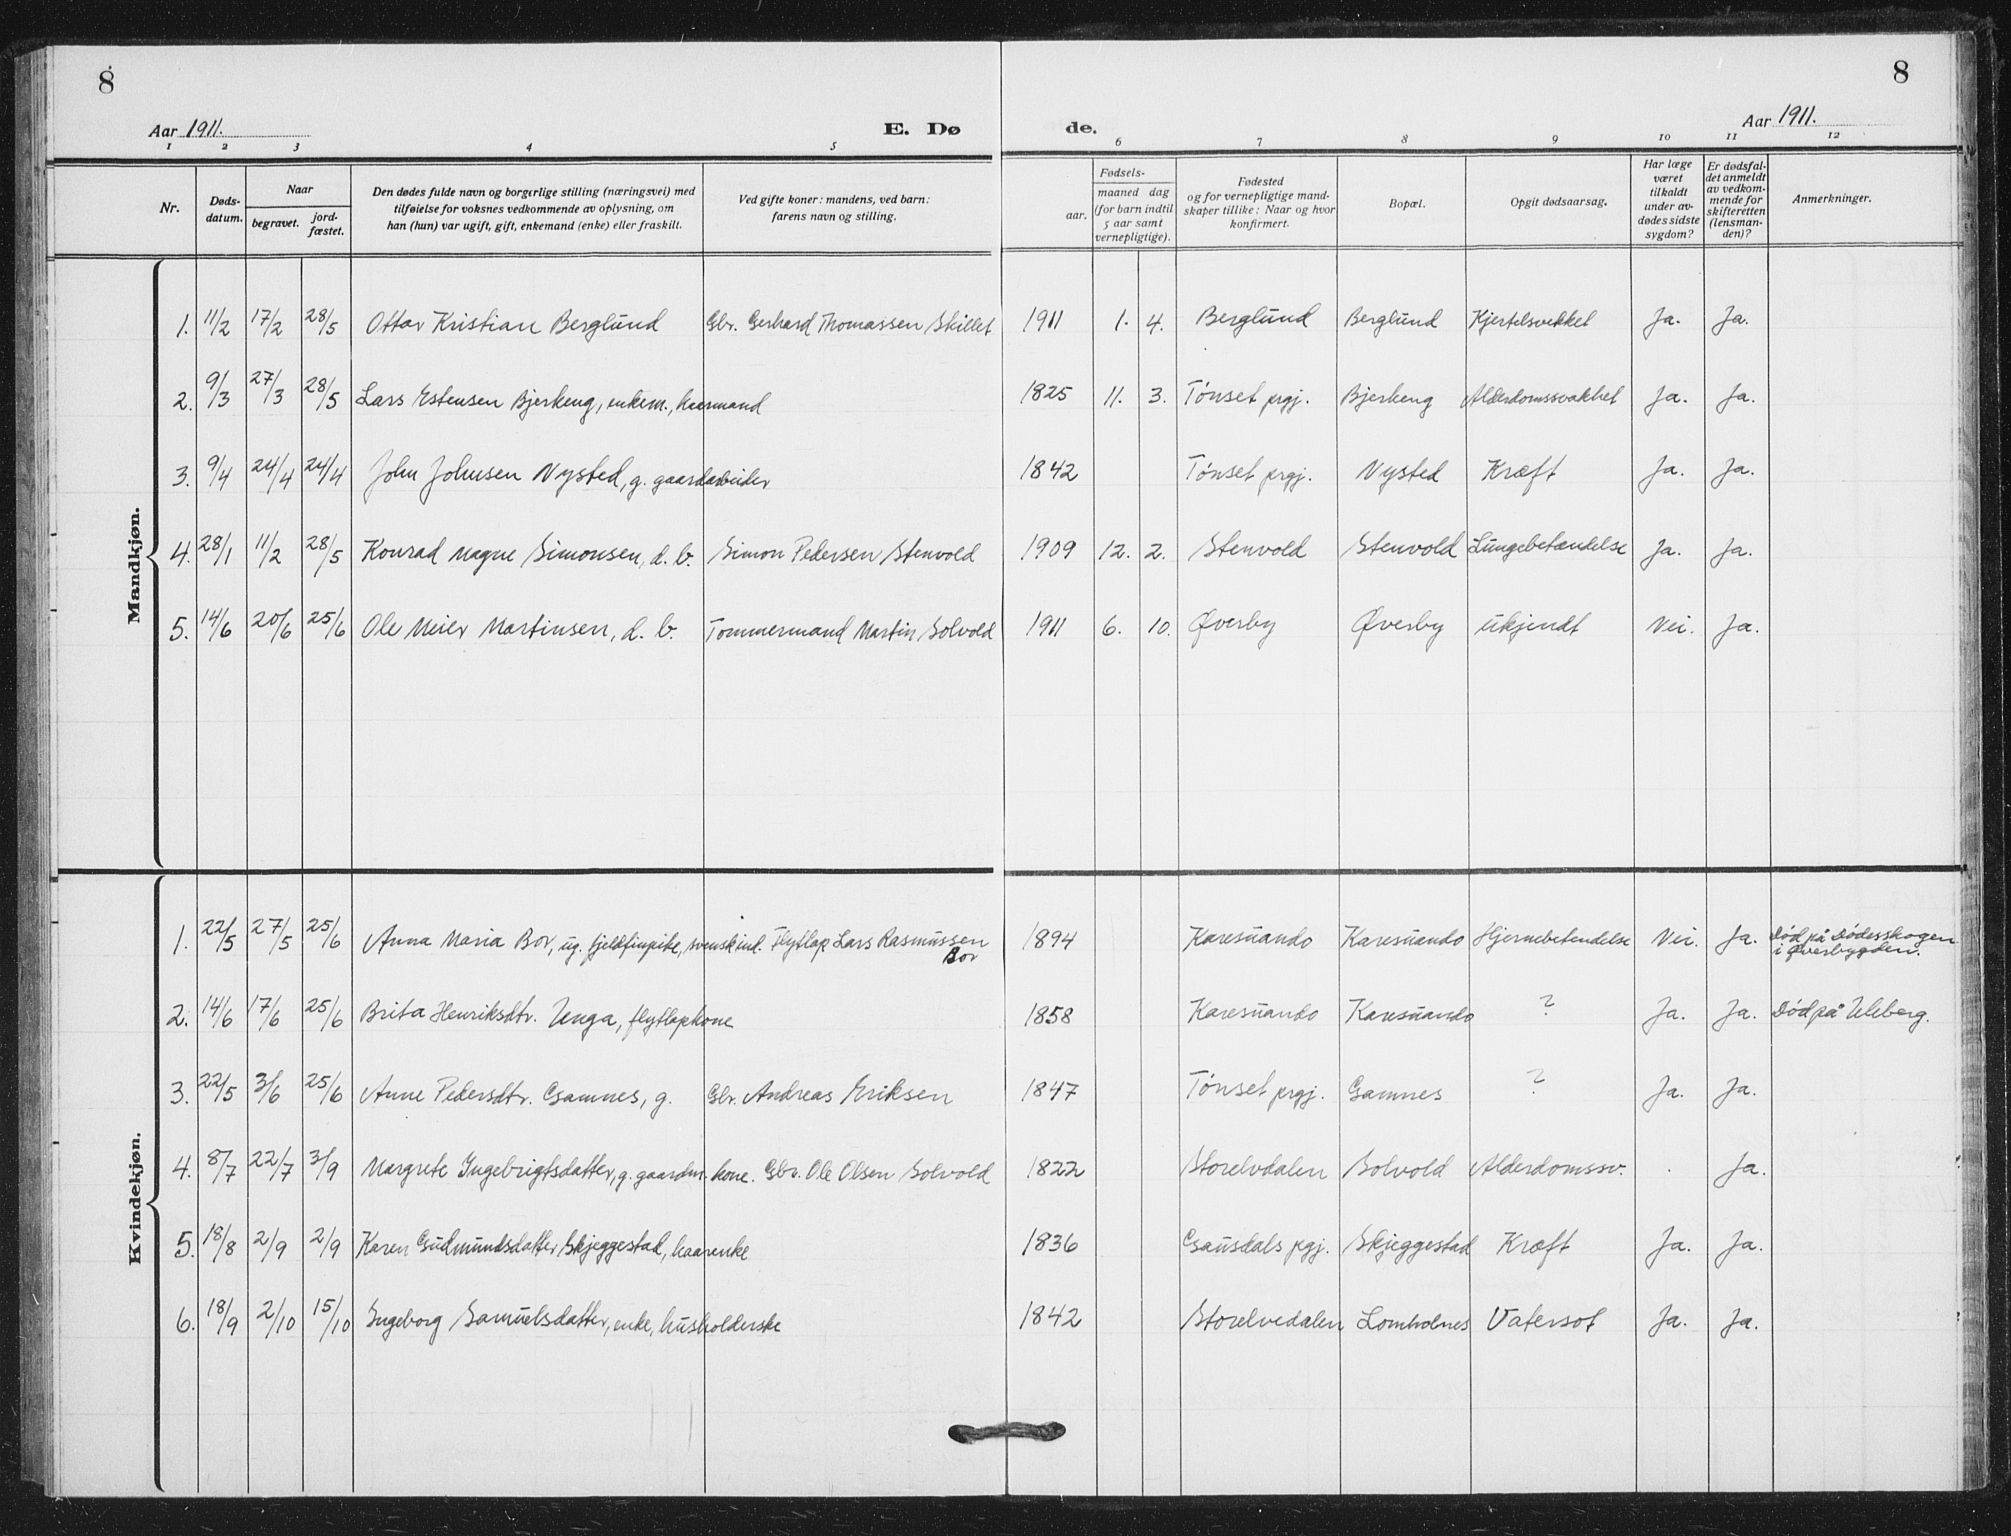 8 8
Aar 1911. E. Dø de. Aar 1911.
1 2 3 4 5 6 7 8 9 10 11 12
Nr.
Døds-
datum.
Naar
begravet.
jord-
fæstet.
Den dødes fulde navn og borgerlige stilling (næringsvei) med
tilføielse for voksnes vedkommende av oplysning, om
han (hun) var ugift, gift, enkemand (enke) eller fraskilt.
Ved gifte koner: mandens, ved barn:
farens navn og stilling.
aar.
Fødsels-
maaned dag
(for barn indtil
5 aar samt
vernepligtige).
Fødested
og for vernepligtige mand-
skaper tillike: Naar og hvor
konfirmert.
Bopæl.
Opgit dødsaarsag.
Har læge
været
tilkaldt
under av-
dødes sidste
sygdom?
Er dødsfal-
det anmeldt
av vedkom-
mende for
skifteretten
(lensman-
den)?
Anmerkninger.
Mandkjøn.
1. 11/2 17/2 28/5 Ottar Kristian Berglund Gbr. Gerhard Thomassen Skillet 1911 1. 4. Berglund Berglund Kjertelsvekket Ja. Ja.
2. 9/3 27/3 28/5 Lars Estensen Bjerkeng, enkem., kaarmand 1825 11. 3. Tønset prgj. Bjerkeng Alderdomssvakhet Ja. Ja.
3. 9/4 24/4 24/4 John Johnsen Nysted, g. gaardarbeider 1842 Tønset prgj. Nysted Kræft Ja. Ja.
4. 28/1 11/2 28/5 Konrad Magne Simonsen, d. b. Simon Pedersen Stenvold 1909 12. 2. Stenvold Stenvold Lungebetændelse Ja. Ja.
5. 14/6 20/6 25/6 Ole Meier Martinsen, d. b. Tømmermand Martin Solvold 1911 6. 10. Øverby Øverby ukjendt Nei. Ja.
Kvindekjøn.
1. 22/5 27/5 25/6 Anna Maria Bor, ug. fjeldfinpike, svensk ind. Flytlap Lars Rasmussen 1894 Karesuando Karesuando Hjernebetendelse Nei. Ja. Død på Dødesskogen
Bor i Øverbygden.
2. 14/6 17/6 25/6 Brita Henriksdtr. Unga, flytlapkone 1858 Karesuando Karesuando ? Ja. Ja. Død på Uleberg.
3. 22/5 3/6 25/6 Anne Pedersdtr. Gamnes, g. Gbr. Andreas Eriksen 1847 Tønset prgj. Gamnes ? Ja. Ja.
4. 8/7 22/7 3/9 Margrete Ingebrigtsdatter, g. gaardm. kone. Gbr. Ole Olsen Solvold 1822 Storelvdalen Solvold Alderdomssv. Ja.
5. 18/8 2/9 2/9 Karen Gudmundsdatter Skjeggestad, kaarenke 1836 Gausdals pgj. Skjeggestad Kræft Ja. Ja.
6. 18/9 2/10 15/10 Ingeborg Samuelsdatter, enke, husholderske 1842 Storelvedalen Lomholnes Vatersot Ja. Ja.